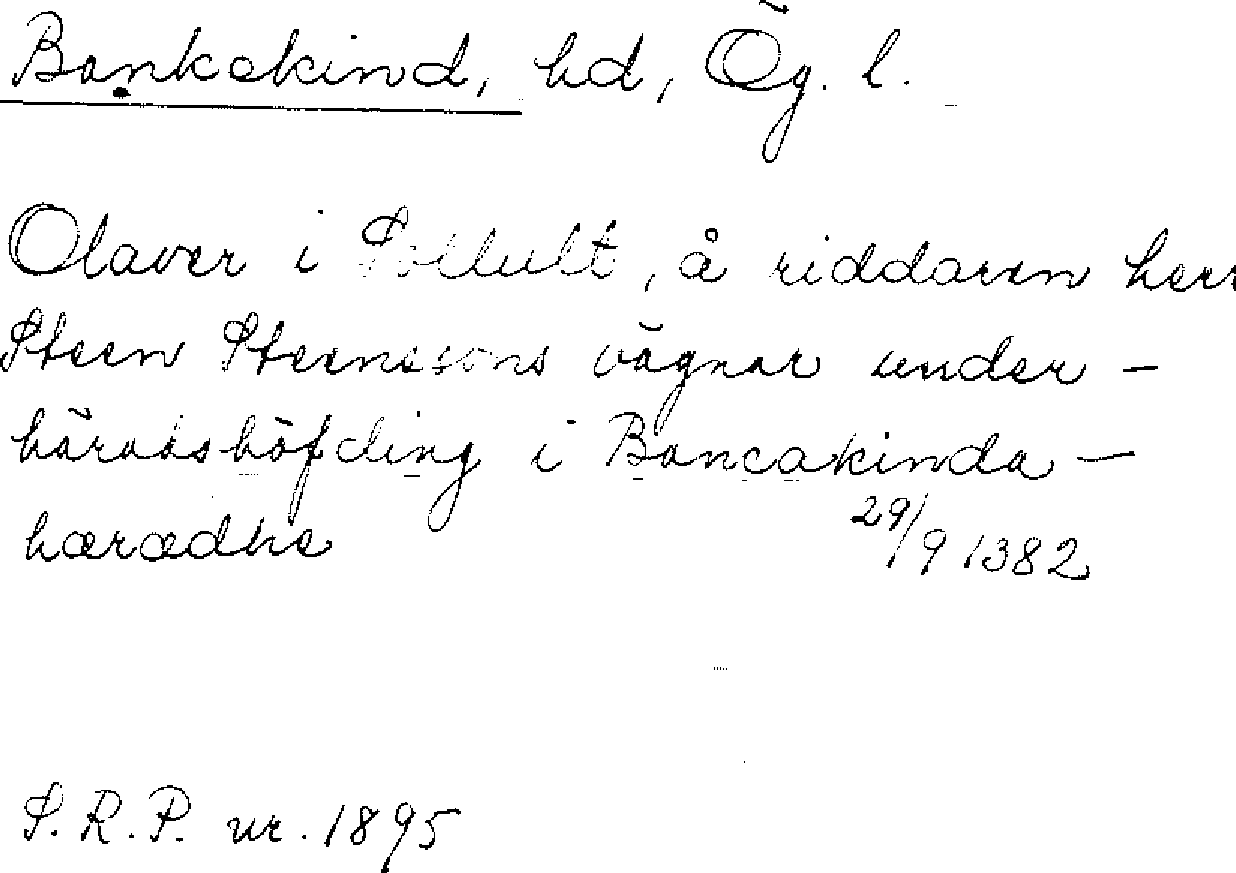 Bankekind, hd, Ög. l.
Olaver i Sollult, å riddaren herr
Steen Steenssons vägnar under-
häradshöfding i Bancakinda-
hærædhe 29/9 1382
S. R. P. nr. 1895